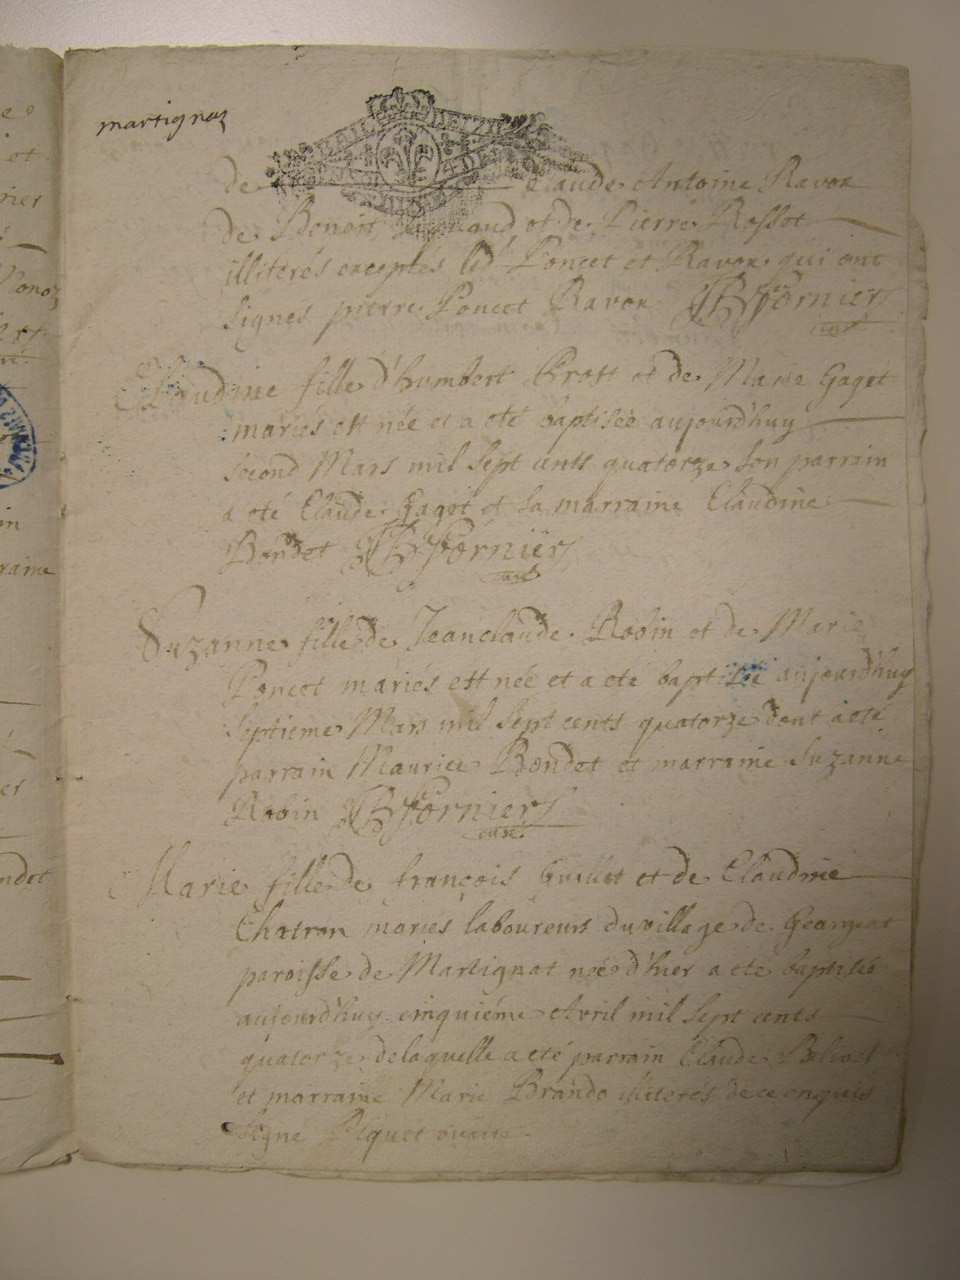 martignaz
de Claude Antoine Ravoz
de Benoit et de Pierre Rossot
illiterés exceptés led Poncet et Ravoz qui ont
signés pierre Poncet Ravoz Fornier
curé
Claudine fille d'humbert Grost et de Marie Gagot
mariés est née et a eté baptisée aujourd'huy
second Mars mil sept cents quatorze son parrain
a eté Claude Gagot et sa marraine Claudine
Bondet Fornier
curé
Suzanne fille de Jeanclaude Robin et de Marie
Poncet mariés est née et a eté baptisée aujourd'huy
septieme Mars mil sept cents quatorze dont a eté
parrain Maurice Bondet et marraine Suzanne
Robin Fornier
curé
Marie fille de françois et de Claudine
Chatron mariés laboureurs du village de Geargeat
paroisse de Martignat née d'hier a eté baptisée
aujourd'huy cinquiéme Avril mil sept cents
quatorze de laquelle a eté parrain Claude
et marraine Marie Brando illiterés de ce enquis
signe Piquet